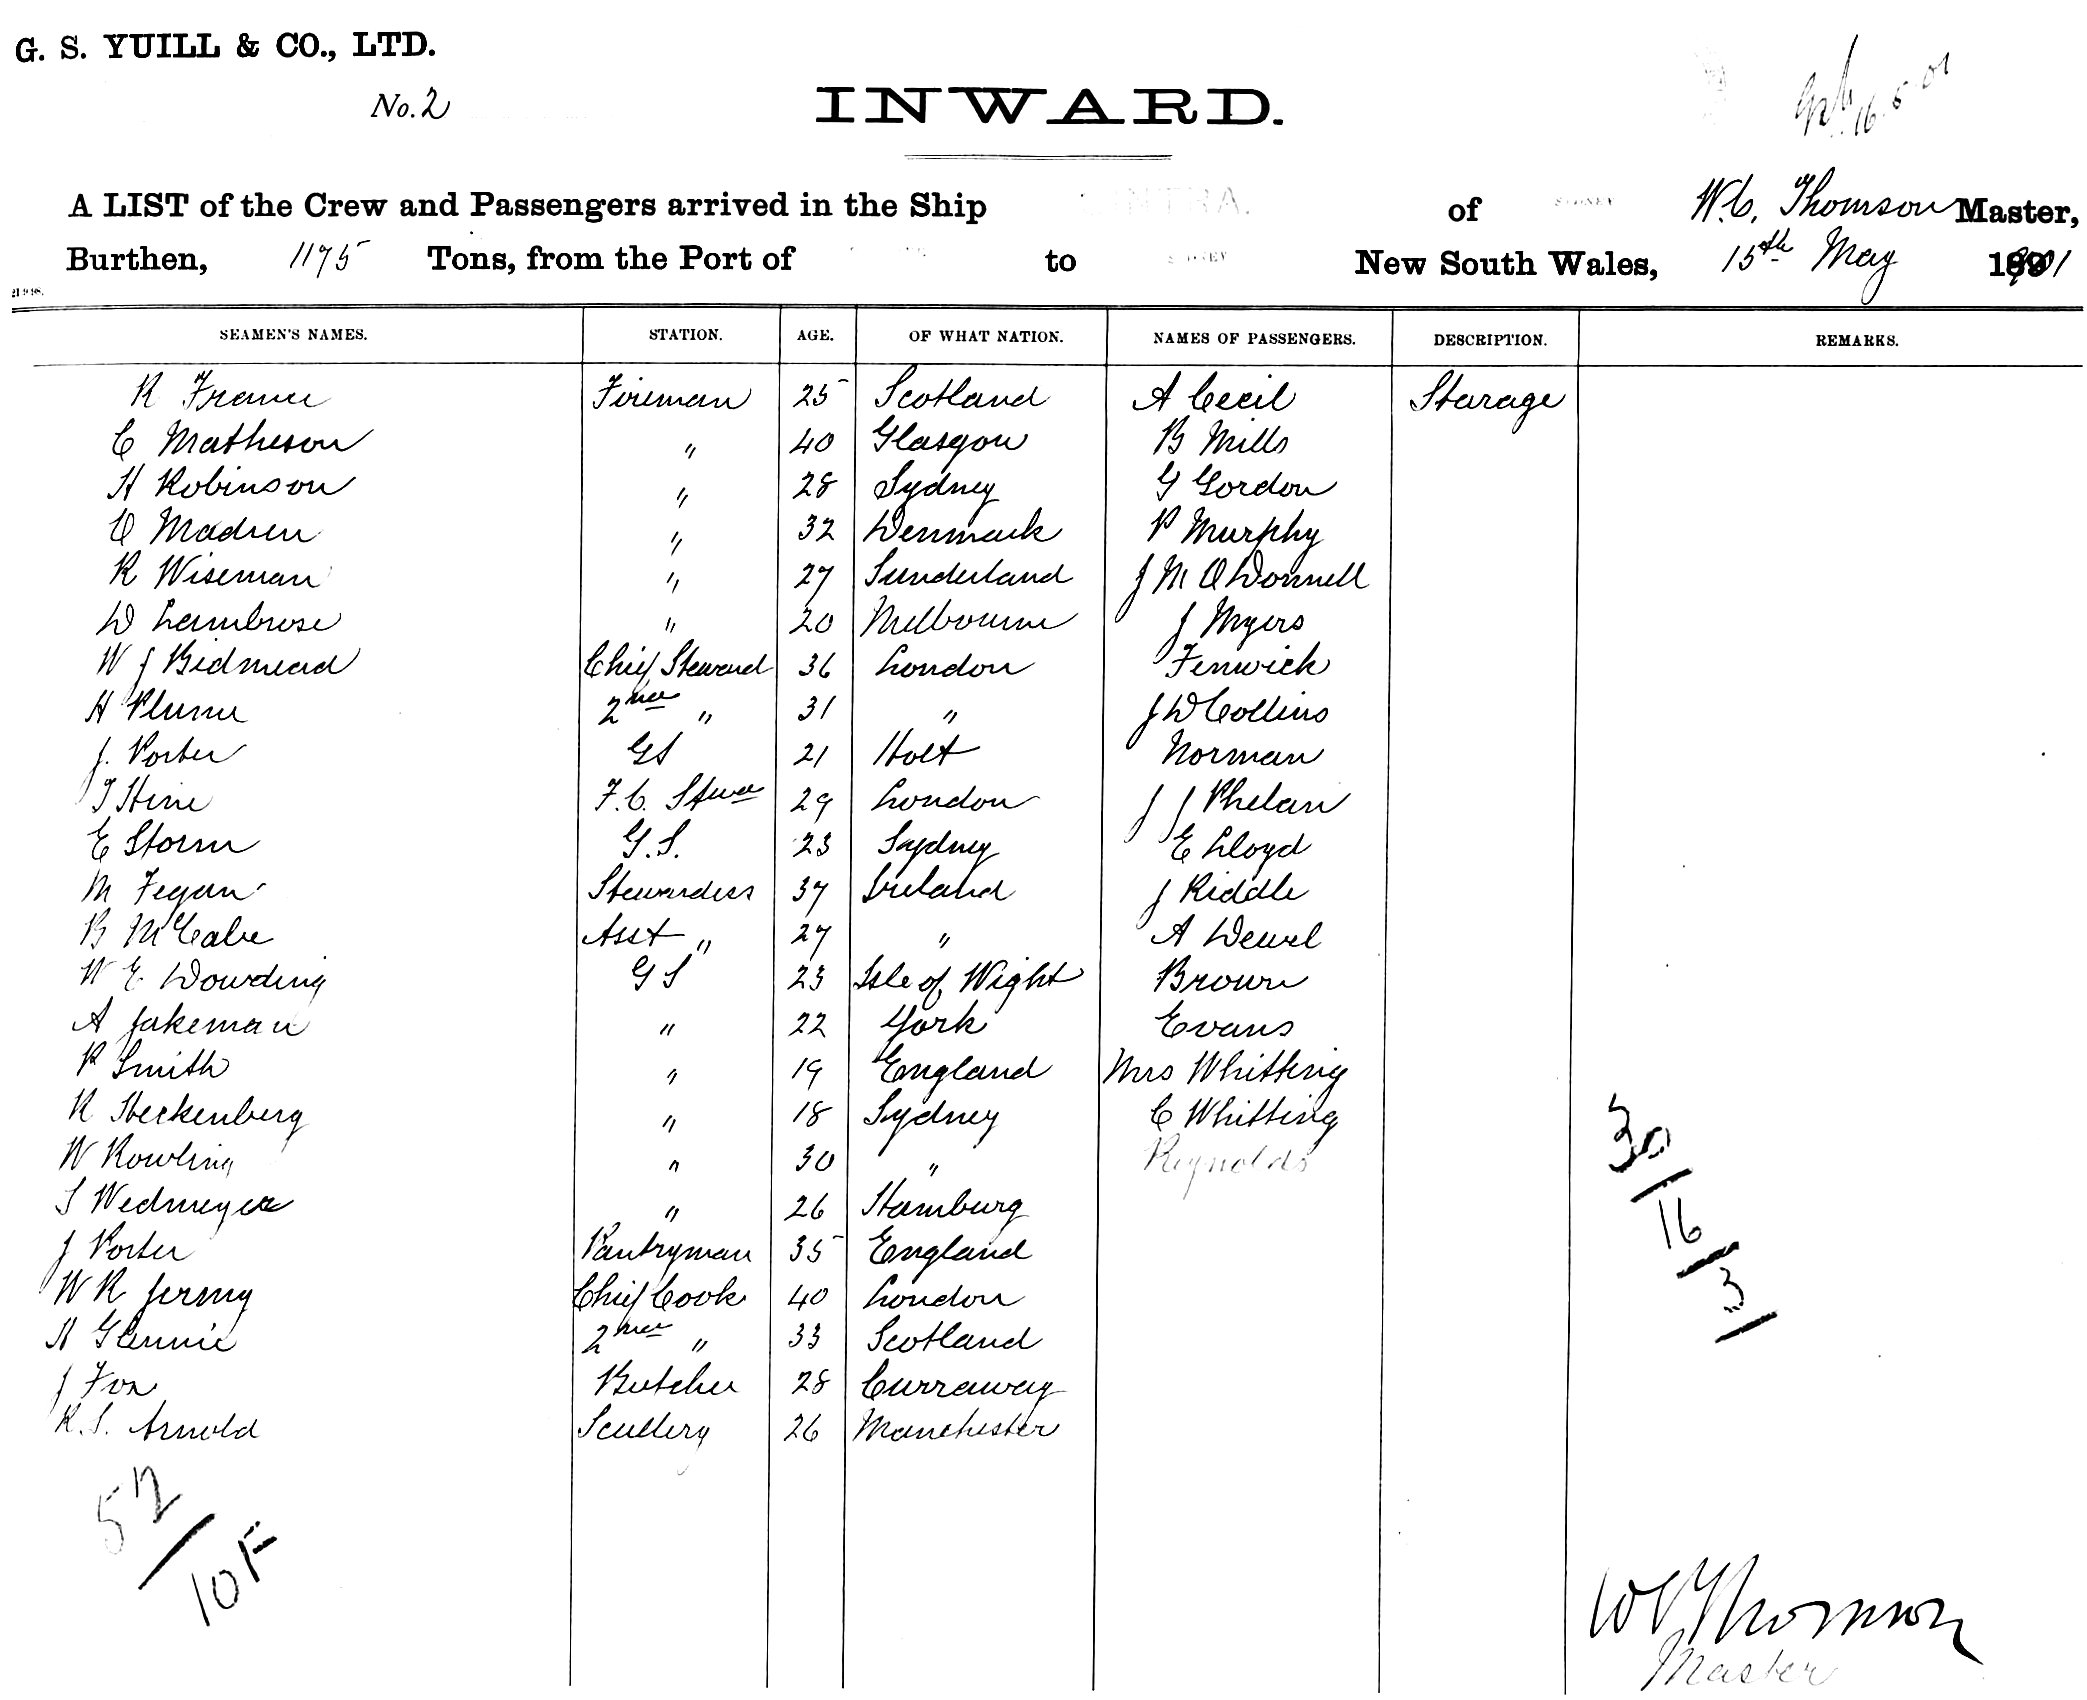 G. S. YUILL & CO., LTD.
No. 2
INWARD.
16 5 01
A LIST of the Crew and Passengers arrived in the Ship of SYDNEY W.C. Thomson Master,
Burthen, 1175 Tons, from the Port of to SYDNEY New South Wales, 15th May 1901
SEAMEN'S NAMES. STATION. AGE. OF WHAT NATION. NAMES OF PASSENGERS. DESCRIPTION. REMARKS.
R Fraser Fireman 25 Scotland A Cecil Starage
C Matheson " 40 Glasgow B Mills
H Robinson " 28 Sydney G Gordon
O Madsen " 32 Denmark P Murphy
R Wiseman " 27 Sunderland J M O Donnell
D Lambrose " 20 Melbourne J Myers
W J Bidmead Chief Steward 36 London Fenwick
H Plume 2nd " 31 " J D Collins
J. Porter GS 21 Holt Norman
T Hine F.C. Stwd 29 London J J Phelan
E Storm G.S. 23 Sydney E Lloyd
M Fegan Stewardess 37 Ireland J Riddle
B McCabe Asst " 27 " A
W E Dowding GS 23 Isle of Wight Brown
A Jakeman " 22 York Evans
P Smith " 19 England Mrs Whitting
R Heckenberg " 18 Sydney C Whitting
W Rowling " 30 " Reynolds
S Wedmeyer " 26 Hamburg
J Porter Pantryman 35 England
W R Jermy Chief Cook 40 London
A Glennie 2nd " 33 Scotland
J Fox Butcher 28 Curraway
R.S. Arnold Scullery 26 Manchester
16
3
52
10 F
W C Thomson
Master